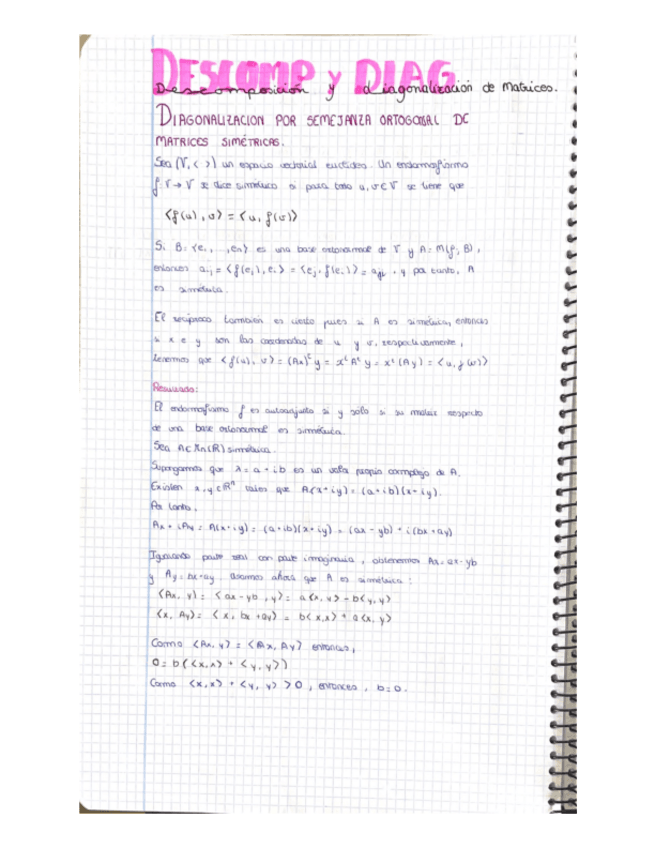 DESCOMP y DIAG.
Descomposición y diagonalización de Matrices.
DIAGONALIZACION POR SEMEJANZA ORTOGONAL DE
MATRICES SIMÉTRICAS.
Sea (V, < >) un espacio vectorial euclídeo. Un endomorfismo
f: V → V se dice simétrico si para todo u, v ∈ V se tiene que
<f(u), v> = <u, f(v)>
Si B = {e₁, ..., eₙ} es una base ortonormal de V y A = M(f, B),
entonces aᵢⱼ = <f(eⱼ), eᵢ> = <eⱼ, f(eᵢ)> = aⱼᵢ, y por tanto, A
es simétrica.
El recíproco también es cierto pues si A es simétrica, entonces
si x e y son las coordenadas de u y v, respectivamente,
tenemos que <f(u), v> = (Ax)ᵗ y = xᵗ Aᵗ y = xᵗ (Ay) = <u, f(v)>
Resultado:
El endomorfismo f es autoadjunto si y solo si su matriz respecto
de una base ortonormal es simétrica.
Sea A ∈ Mn(R) simétrica.
Supongamos que λ = a + ib es un valor propio complejo de A.
Existen x, y ∈ Rⁿ tales que A(x + iy) = (a + ib)(x + iy).
Por tanto,
Ax + iAy = A(x + iy) = (a + ib)(x + iy) = (ax - yb) + i(bx + ay)
Igualando parte real con parte imaginaria, obtenemos Ax = ax - yb
y Ay = bx + ay. Usamos ahora que A es simétrica:
<Ax, y> = <ax - yb, y> = a<x, y> - b<y, y>
<x, Ay> = <x, bx + ay> = b<x, x> + a<x, y>
Como <Ax, y> = <x, Ay> entonces,
0 = b(<x, x> + <y, y>)
Como <x, x> + <y, y> > 0, entonces, b = 0.